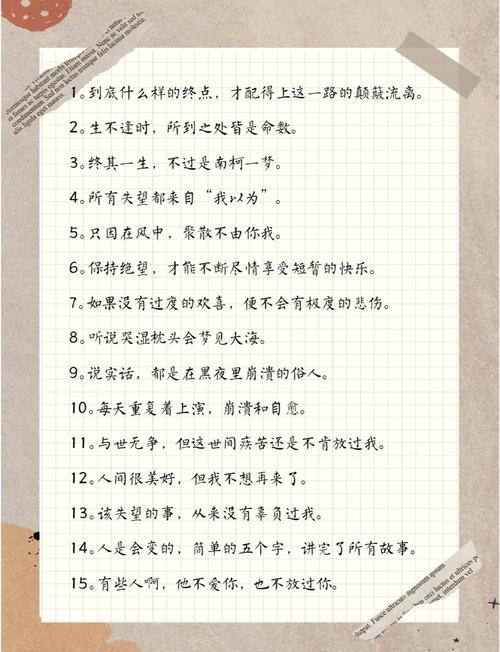 1。到底什么样的终点，才配得上这一路的颠簸流离。
2。生不逢时，所到之处皆是命数。
3。终其一生，不过是南柯一梦。
4。所有失望都来自“我以为”。
5。只因在风中，聚散不由你我。
6。保持绝望，才能不断尽情享受短暂的快乐。
7。如果没有过度的欢喜，便不会有极度的悲伤。
8。听说哭湿枕头会梦见大海。
9。说实话，都是在黑夜里崩溃的俗人。
10。每天重复着上演，崩溃和自愈。
11。与世无争，但这世间疾苦还是不肯放过我。
12。人间很美好，但我不想再来了。
13。该失望的事，从来没有辜负过我。
14。人是会变的，简单的五个字，讲完了所有故事。
15。有些人啊，他不爱你，也不放过你。